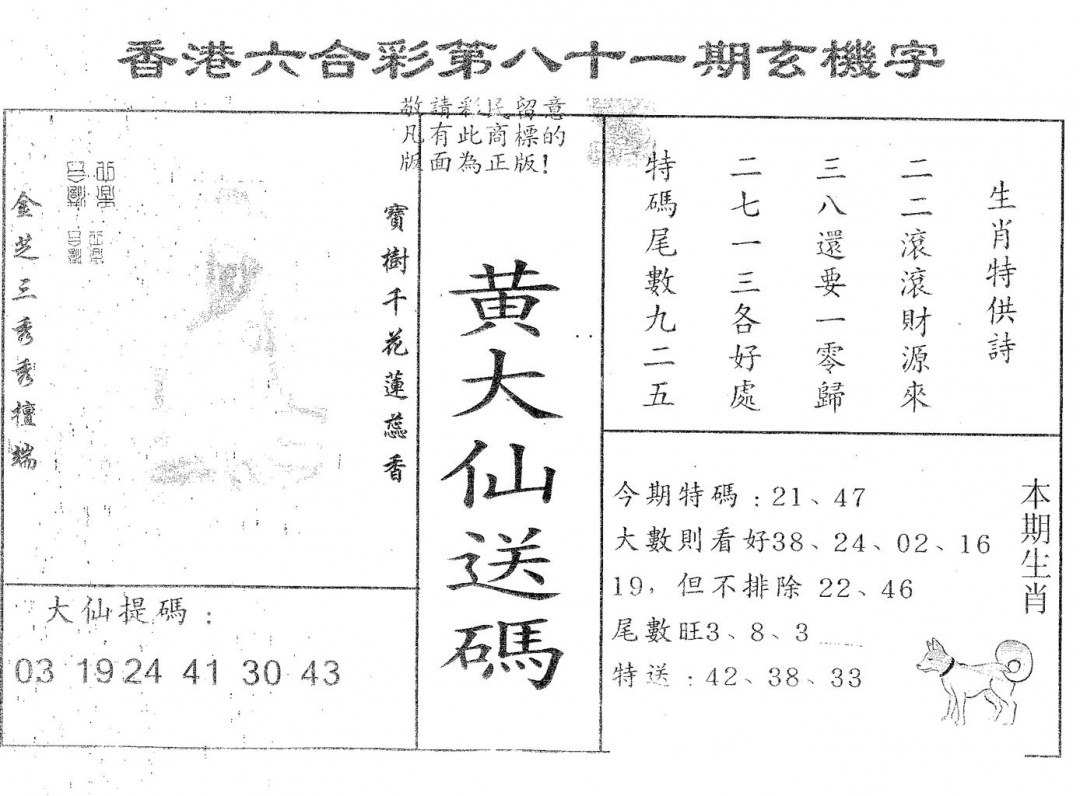 香港六合彩第八十一期玄機字
敬請彩民留意
凡有此商標的
版面為正版！
生肖特供詩
二二滾滾財源來
三八還要一零歸
二七一三各好處
特碼尾數九二五
黃大仙送碼
寶樹千花蓮蕊香
金芝三秀秀檀端
大仙提碼：
03 19 24 41 30 43
本期生肖
今期特碼：21、47
大數則看好38、24、02、16
19，但不排除 22、46
尾數旺3、8、3
特送：42、38、33